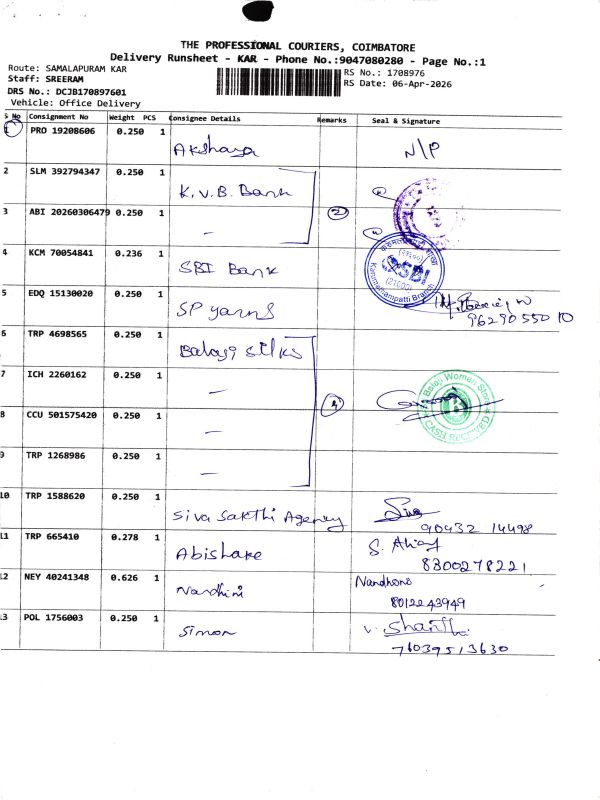 THE PROFESSIONAL COURIERS, COIMBATORE
Delivery Runsheet - KAR - Phone No.:9047080280 - Page No.:1
Route: SAMALAPURAM KAR
Staff: SREERAM
DRS No.: DCJB170897601
Vehicle: Office Delivery
RS No.: 1708976
RS Date: 06-Apr-2026
S No Consignment No Weight PCS Consignee Details Remarks Seal & Signature
1 PRO 19208606 0.250 1 Akshaya N/P
2 SLM 392794347 0.250 1 K.V.B. Bank
3 ABI 20260306479 0.250 1 - 2
4 KCM 70054841 0.236 1 SBI Bank
SBI
(21600)
Karumathampatti Branch
5 EDQ 15130020 0.250 1 SP yarns
96290 550 10
6 TRP 4698565 0.250 1 Balagi silks
7 ICH 2260162 0.250 1 -
8 CCU 501575420 0.250 1 - 4
Balaji Women Store
B
CASH RECEIVED
9 TRP 1268986 0.250 1 -
10 TRP 1588620 0.250 1 Siva Sakthi Agency Siva
90432 14498
11 TRP 665410 0.278 1 Abishake S.
8300278221
12 NEY 40241348 0.626 1 Nandhini Nandhono
8012243949
13 POL 1756003 0.250 1 Simon V.
76039513630